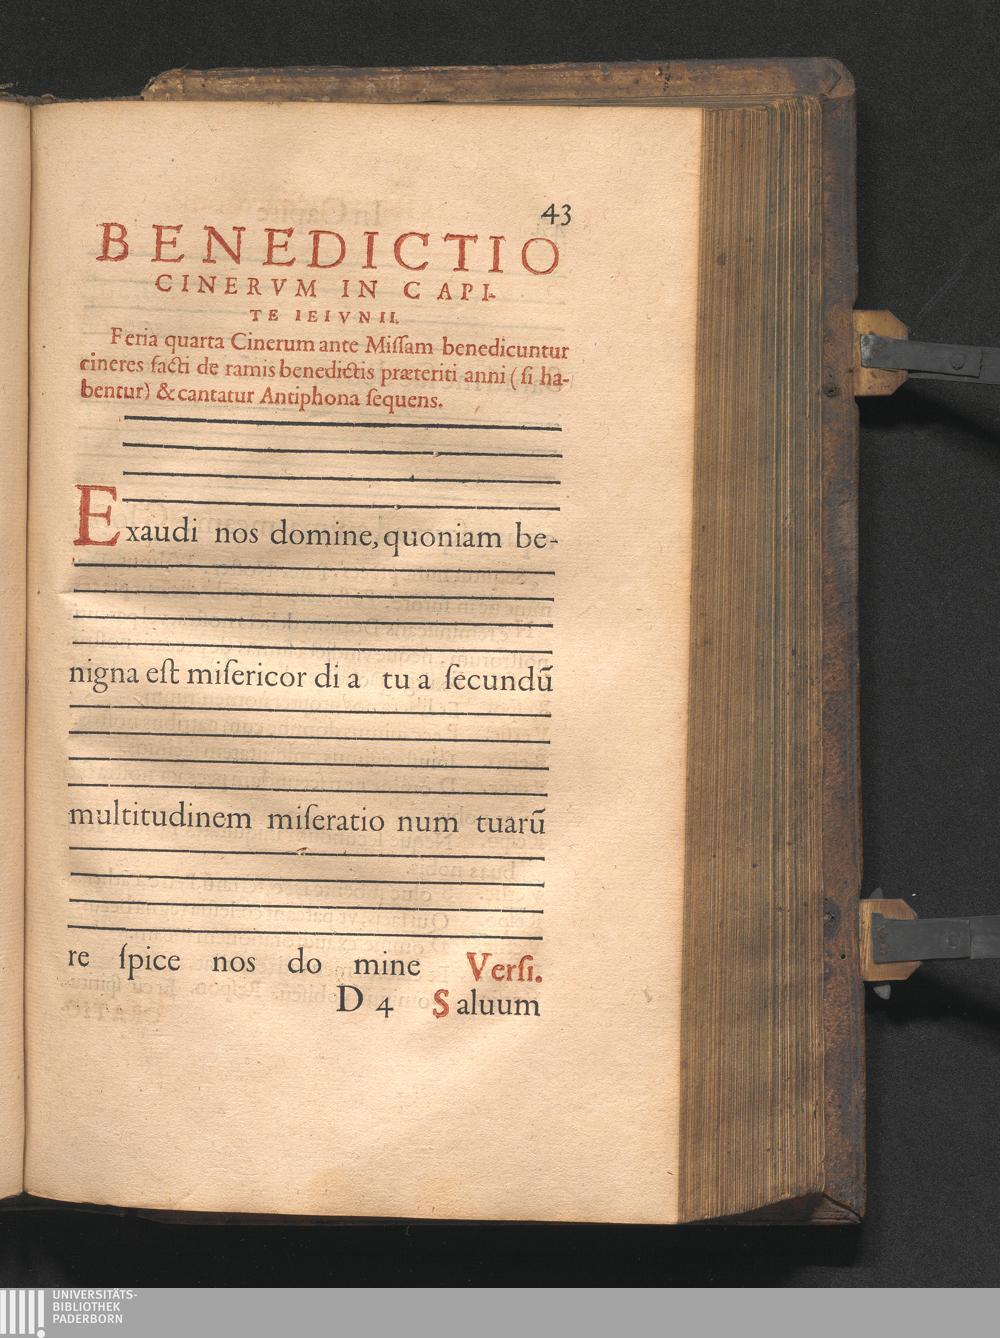 43
BENEDICTIO
CINERVM IN CAPI-
TE IEIVNII.
Feria quarta Cinerum ante Miſſam benedicuntur
cineres facti de ramis benedictis præteriti anni (ſi ha-
bentur) & cantatur Antiphona ſequens.
Exaudi nos domine, quoniam be-
nigna eſt miſericor di a tu a ſecundũ
multitudinem miſeratio num tuarũ
re ſpice nos do mine Verſi.
D 4 Saluum
UNIVERSITÄTS-
BIBLIOTHEK
PADERBORN